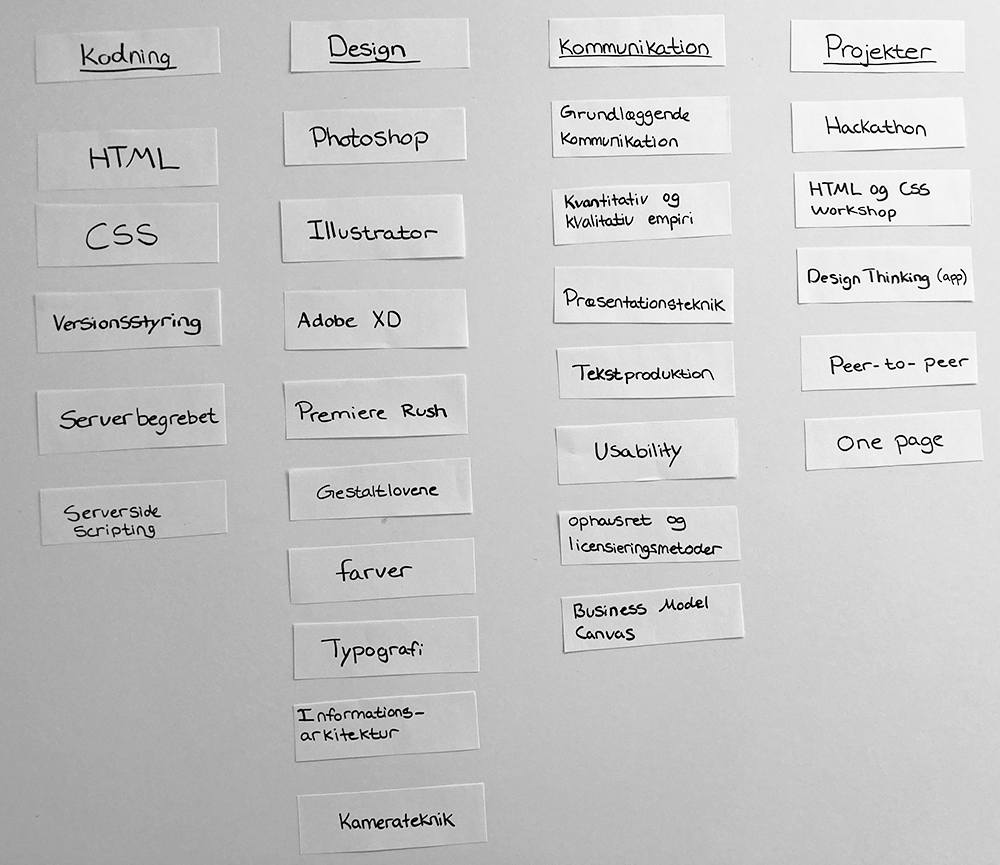 Kodning
HTML
CSS
Versionsstyring
Serverbegrebet
Serverside
scripting
Design
Photoshop
Illustrator
Adobe XD
Premiere Rush
Gestaltlovene
farver
Typografi
Informations-
arkitektur
Kamerateknik
Kommunikation
Grundlæggende
Kommunikation
Kvantitativ og
kvalitativ empiri
Præsentationsteknik
Tekstproduktion
Usability
Ophavsret og
licensieringsmetoder
Business Model
Canvas
Projekter
Hackathon
HTML og CSS
workshop
Design Thinking (app)
Peer-to-peer
One page